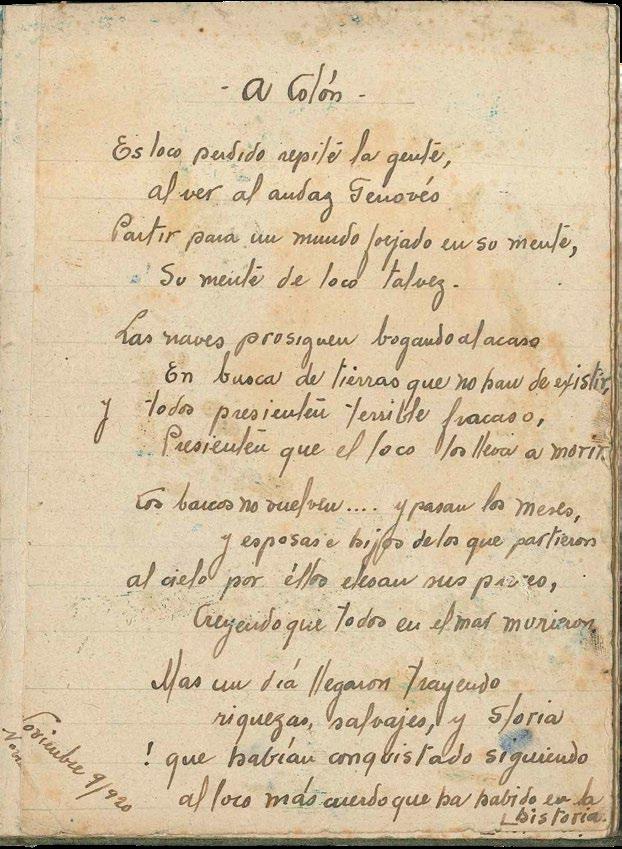 - A Colón -
Es loco perdido repite la gente,
al ver al audaz Genovés
Partir para un mundo forjado en su mente,
Su mente de loco talvez.
Las naves prosiguen bogando al acaso
En busca de tierras que no han de existir,
y todos presienten terrible fracaso,
Presienten que el loco los lleva a morir.
Los barcos no vuelven.... y pasan los meses,
y esposas e hijos de los que partieron
al cielo por éllos elevan sus preces,
Creyendo que todos en el mar murieron.
Mas un día llegaron trayendo
riquezas, salvajes, y Gloria
! que habían conquistado siguiendo
al loco más cuerdo que ha habido en la
historia.
Noviembre 9/920